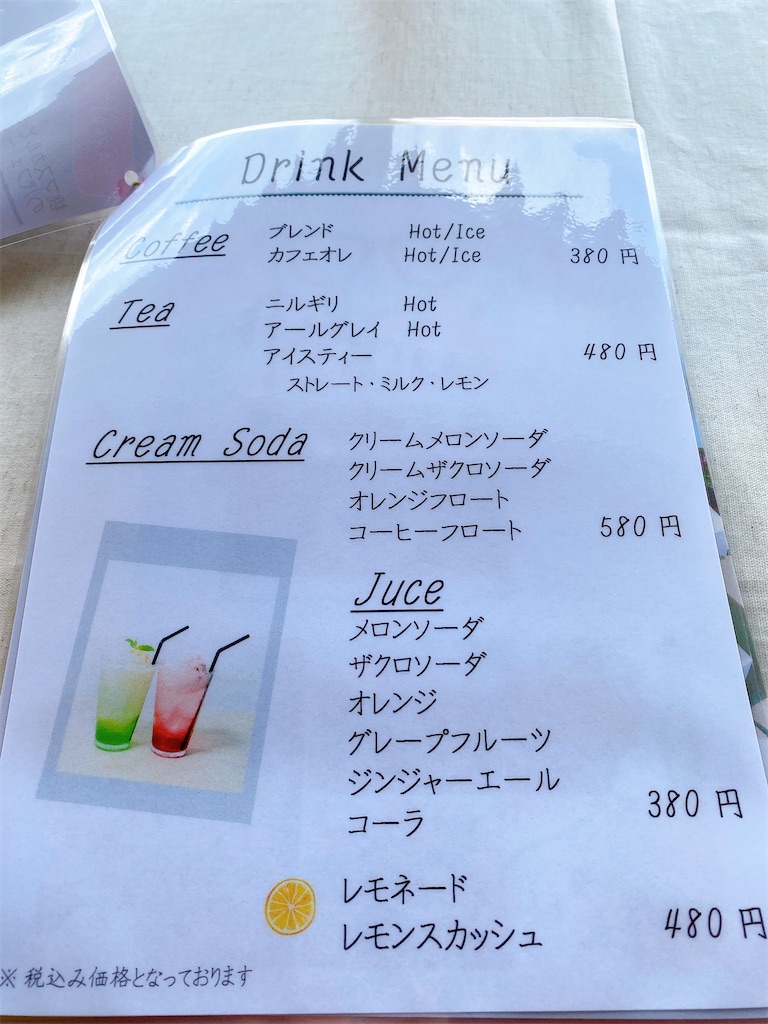 Drink Menu
Coffee ブレンド Hot/Ice
カフェオレ Hot/Ice 380 円
Tea ニルギリ Hot
アールグレイ Hot
アイスティー 480 円
ストレート・ミルク・レモン
Cream Soda クリームメロンソーダ
クリームザクロソーダ
オレンジフロート
コーヒーフロート 580 円
Juce
メロンソーダ
ザクロソーダ
オレンジ
グレープフルーツ
ジンジャーエール
コーラ 380 円
レモネード
レモンスカッシュ 480 円
※ 税込み価格となっております